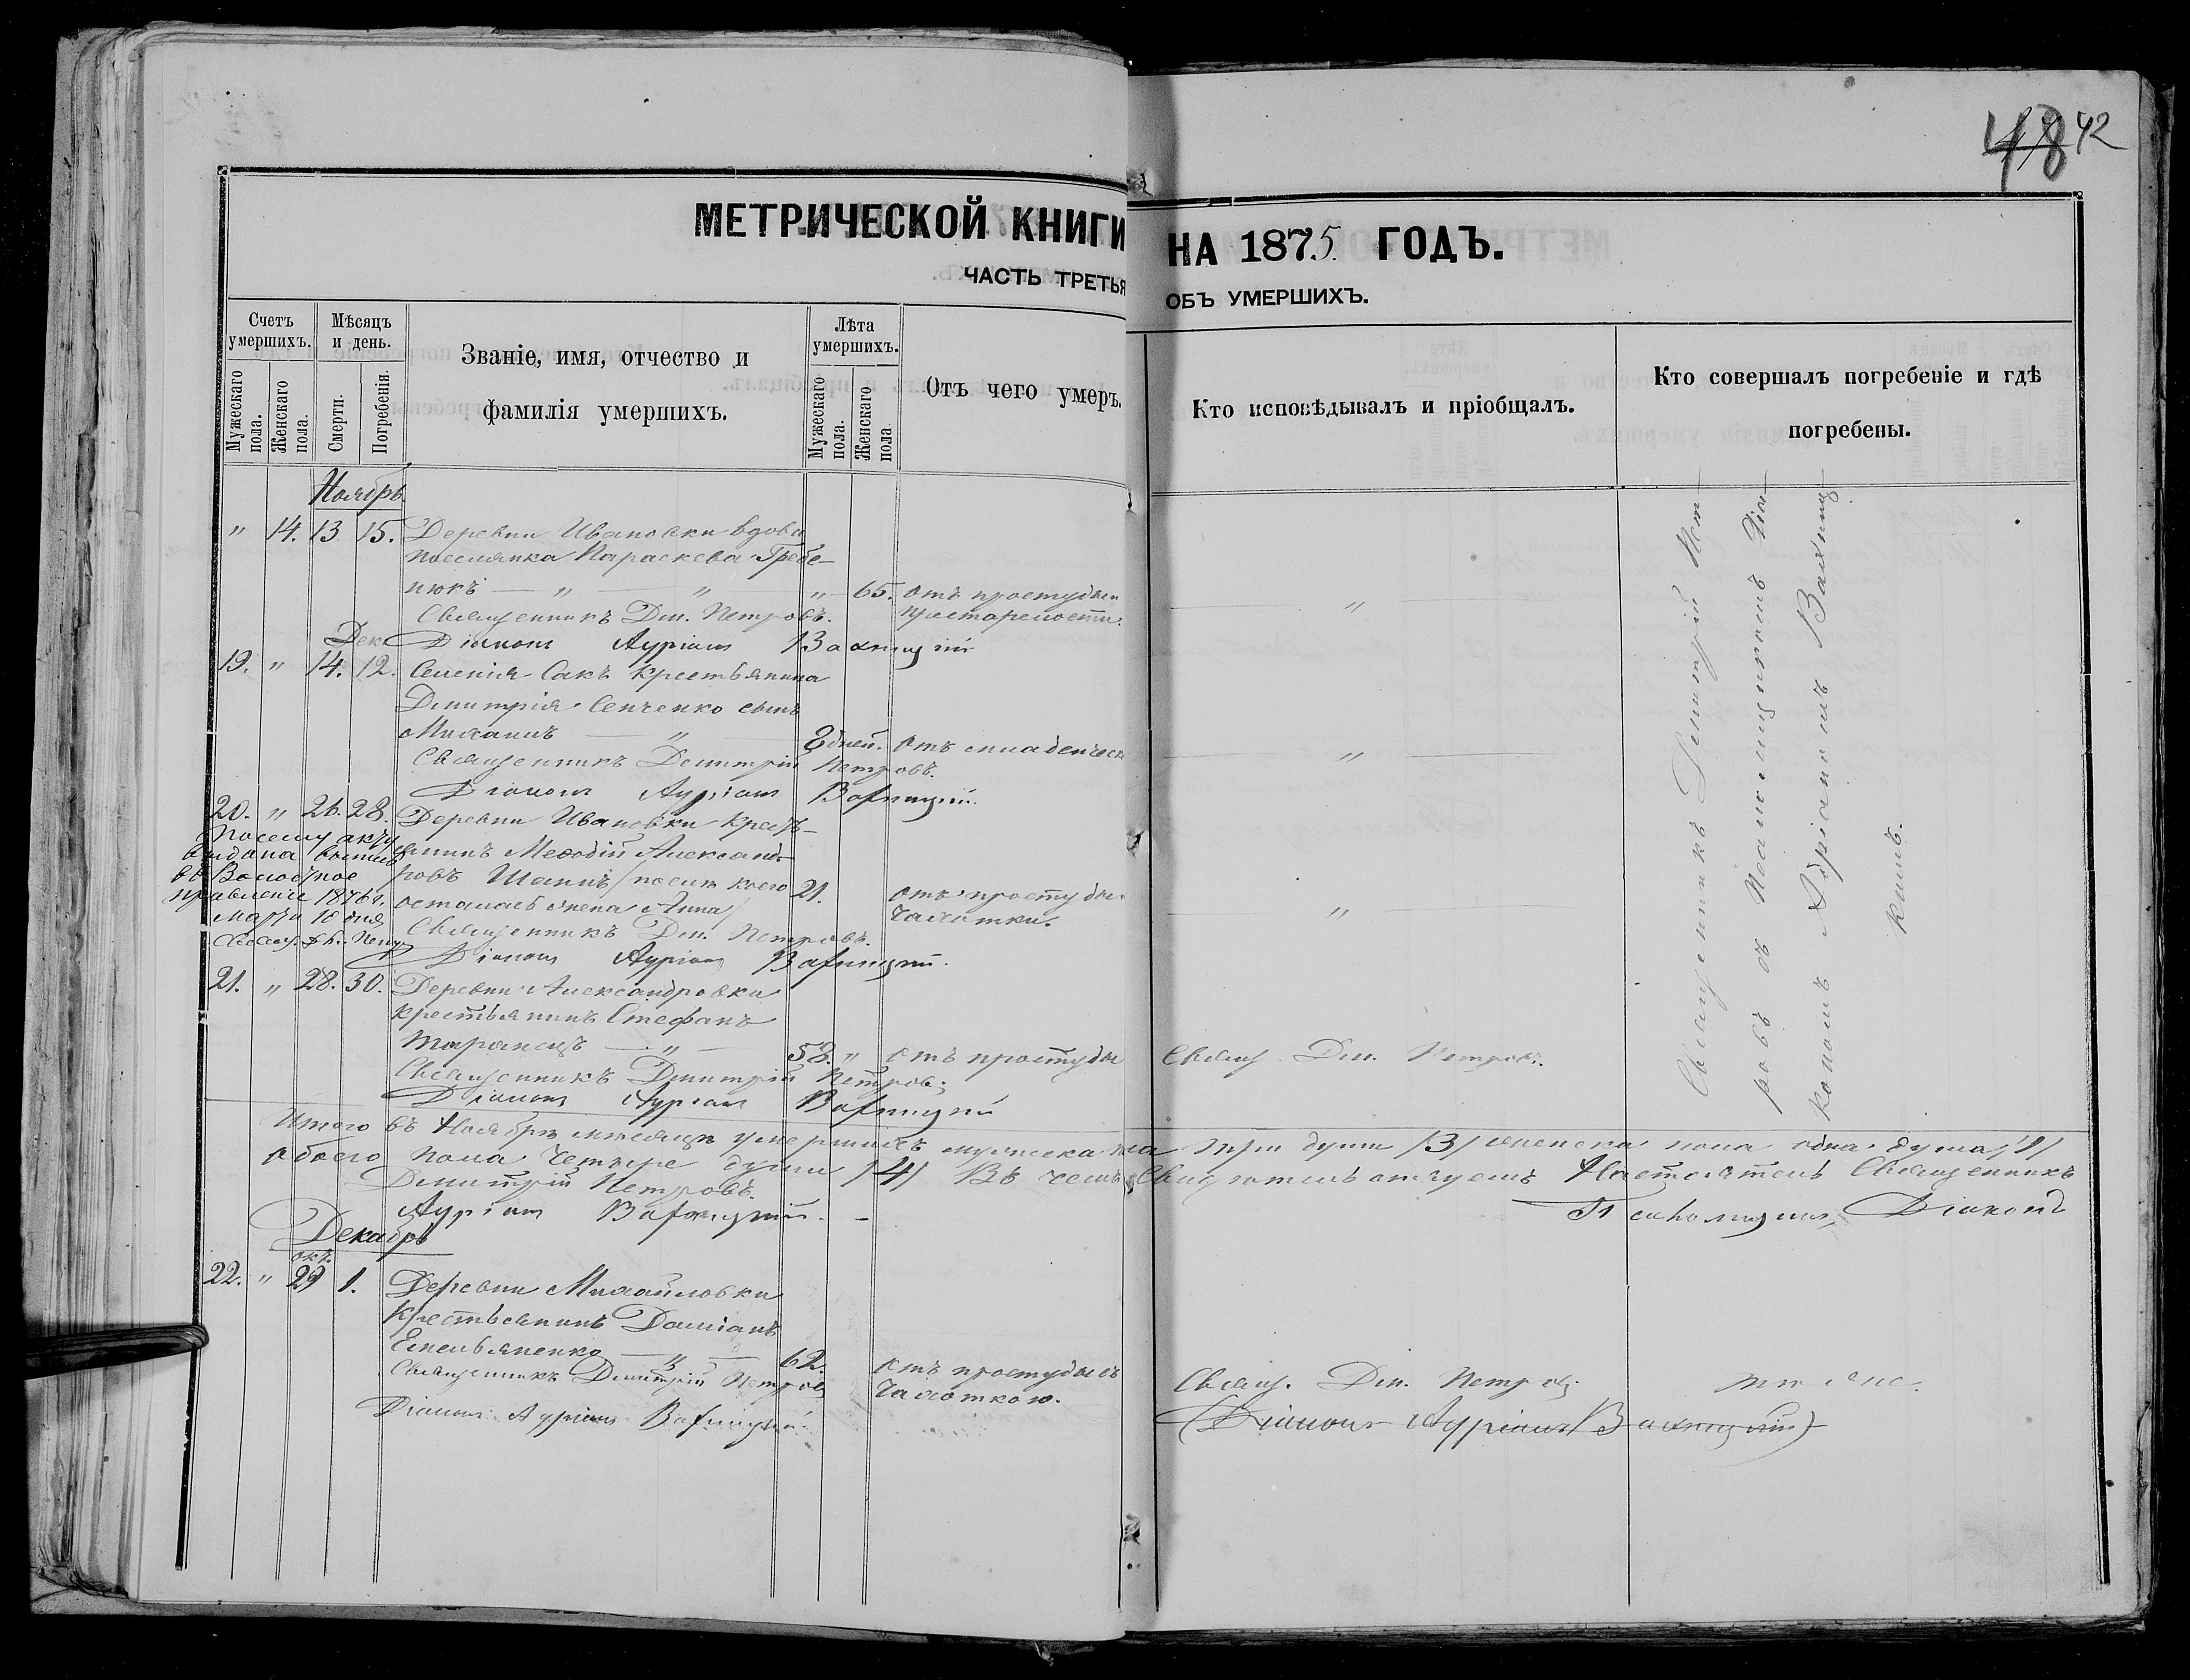 48 42
МЕТРИЧЕСКОЙ КНИГИ НА 1875 ГОДЪ.
ЧАСТЬ ТРЕТЬЯ ОБЪ УМЕРШИХЪ.
Счетъ умершихъ.
Мужескаго пола.
Женскаго пола.
Мѣсяцъ и день.
Смерти.
Погребенія.
Званіе, имя, отчество и
фамилія умершихъ.
Лѣта умершихъ.
Мужескаго пола.
Женскаго пола
Отъ чего умеръ.
Кто исповѣдывалъ и пріобщалъ.
Кто совершалъ погребеніе и гдѣ
погребены.
Ноябрь
" 14. 13 15. Деревни Ивановки вдова
поселянка Параскева Гребе-
нюкъ — " — " — " 65. отъ простуды и
Священникъ Дм. Петровъ. престарелости.
Дек Діаконъ Адріанъ Вахницкій
19. " 14. 12. Селенія Сакъ крестьянина
Димитрія Сенченко сынъ
Михаилъ — " — 8 дней. Отъ младенческ
Священникъ Димитрій Петровъ.
Діаконъ Адріанъ Вахницкій.
20. " 26. 28. Деревни Ивановки крест-
янинъ Меѳодій Александ-
ровъ /после коего 21. отъ простуды
осталась жена Анна/ чахотки.
Священникъ Дм. Петровъ.
Діаконъ Адріанъ Вахницкій.
Посему акту
выдана
въ Волостное
правленіе 1876 г.
Марта 10 дня
Свящ. Дм. Петр
21. " 28. 30. Деревни Александровки
крестьянинъ Стефанъ
Таранецъ — " — 58. " отъ простуды Свящ. Дм. Петровъ.
Священникъ Димитрій Петровъ.
Діаконъ Адріанъ Вахницкій
Священникъ Димитрій Пет-
ровъ съ Псаломщикомъ Діа-
кономъ Адріаномъ Вахниц-
кимъ.
Итого въ Ноябрѣ мѣсяцѣ умершихъ мужеска пола три души /3/ женска пола одна душа /1/
обоего пола четыре души /4/ Въ чемъ свидѣтельствуемъ Настоятель Священникъ
Димитрій Петровъ.
Псаломщикъ Діаконъ
Адріанъ Вахницкій. —
Декабрь
окт.
22. " 29 1. Деревни Михайловки
Крестьянинъ Даміанъ
Емельяненко — " — 62. отъ простуды съ
Священникъ Димитрій Петров чахоткою. Свящ. Дм. Петровъ. тѣ же.
Діаконъ Адріанъ Вахницкій. (Діаконъ Адріанъ Вахницкій)